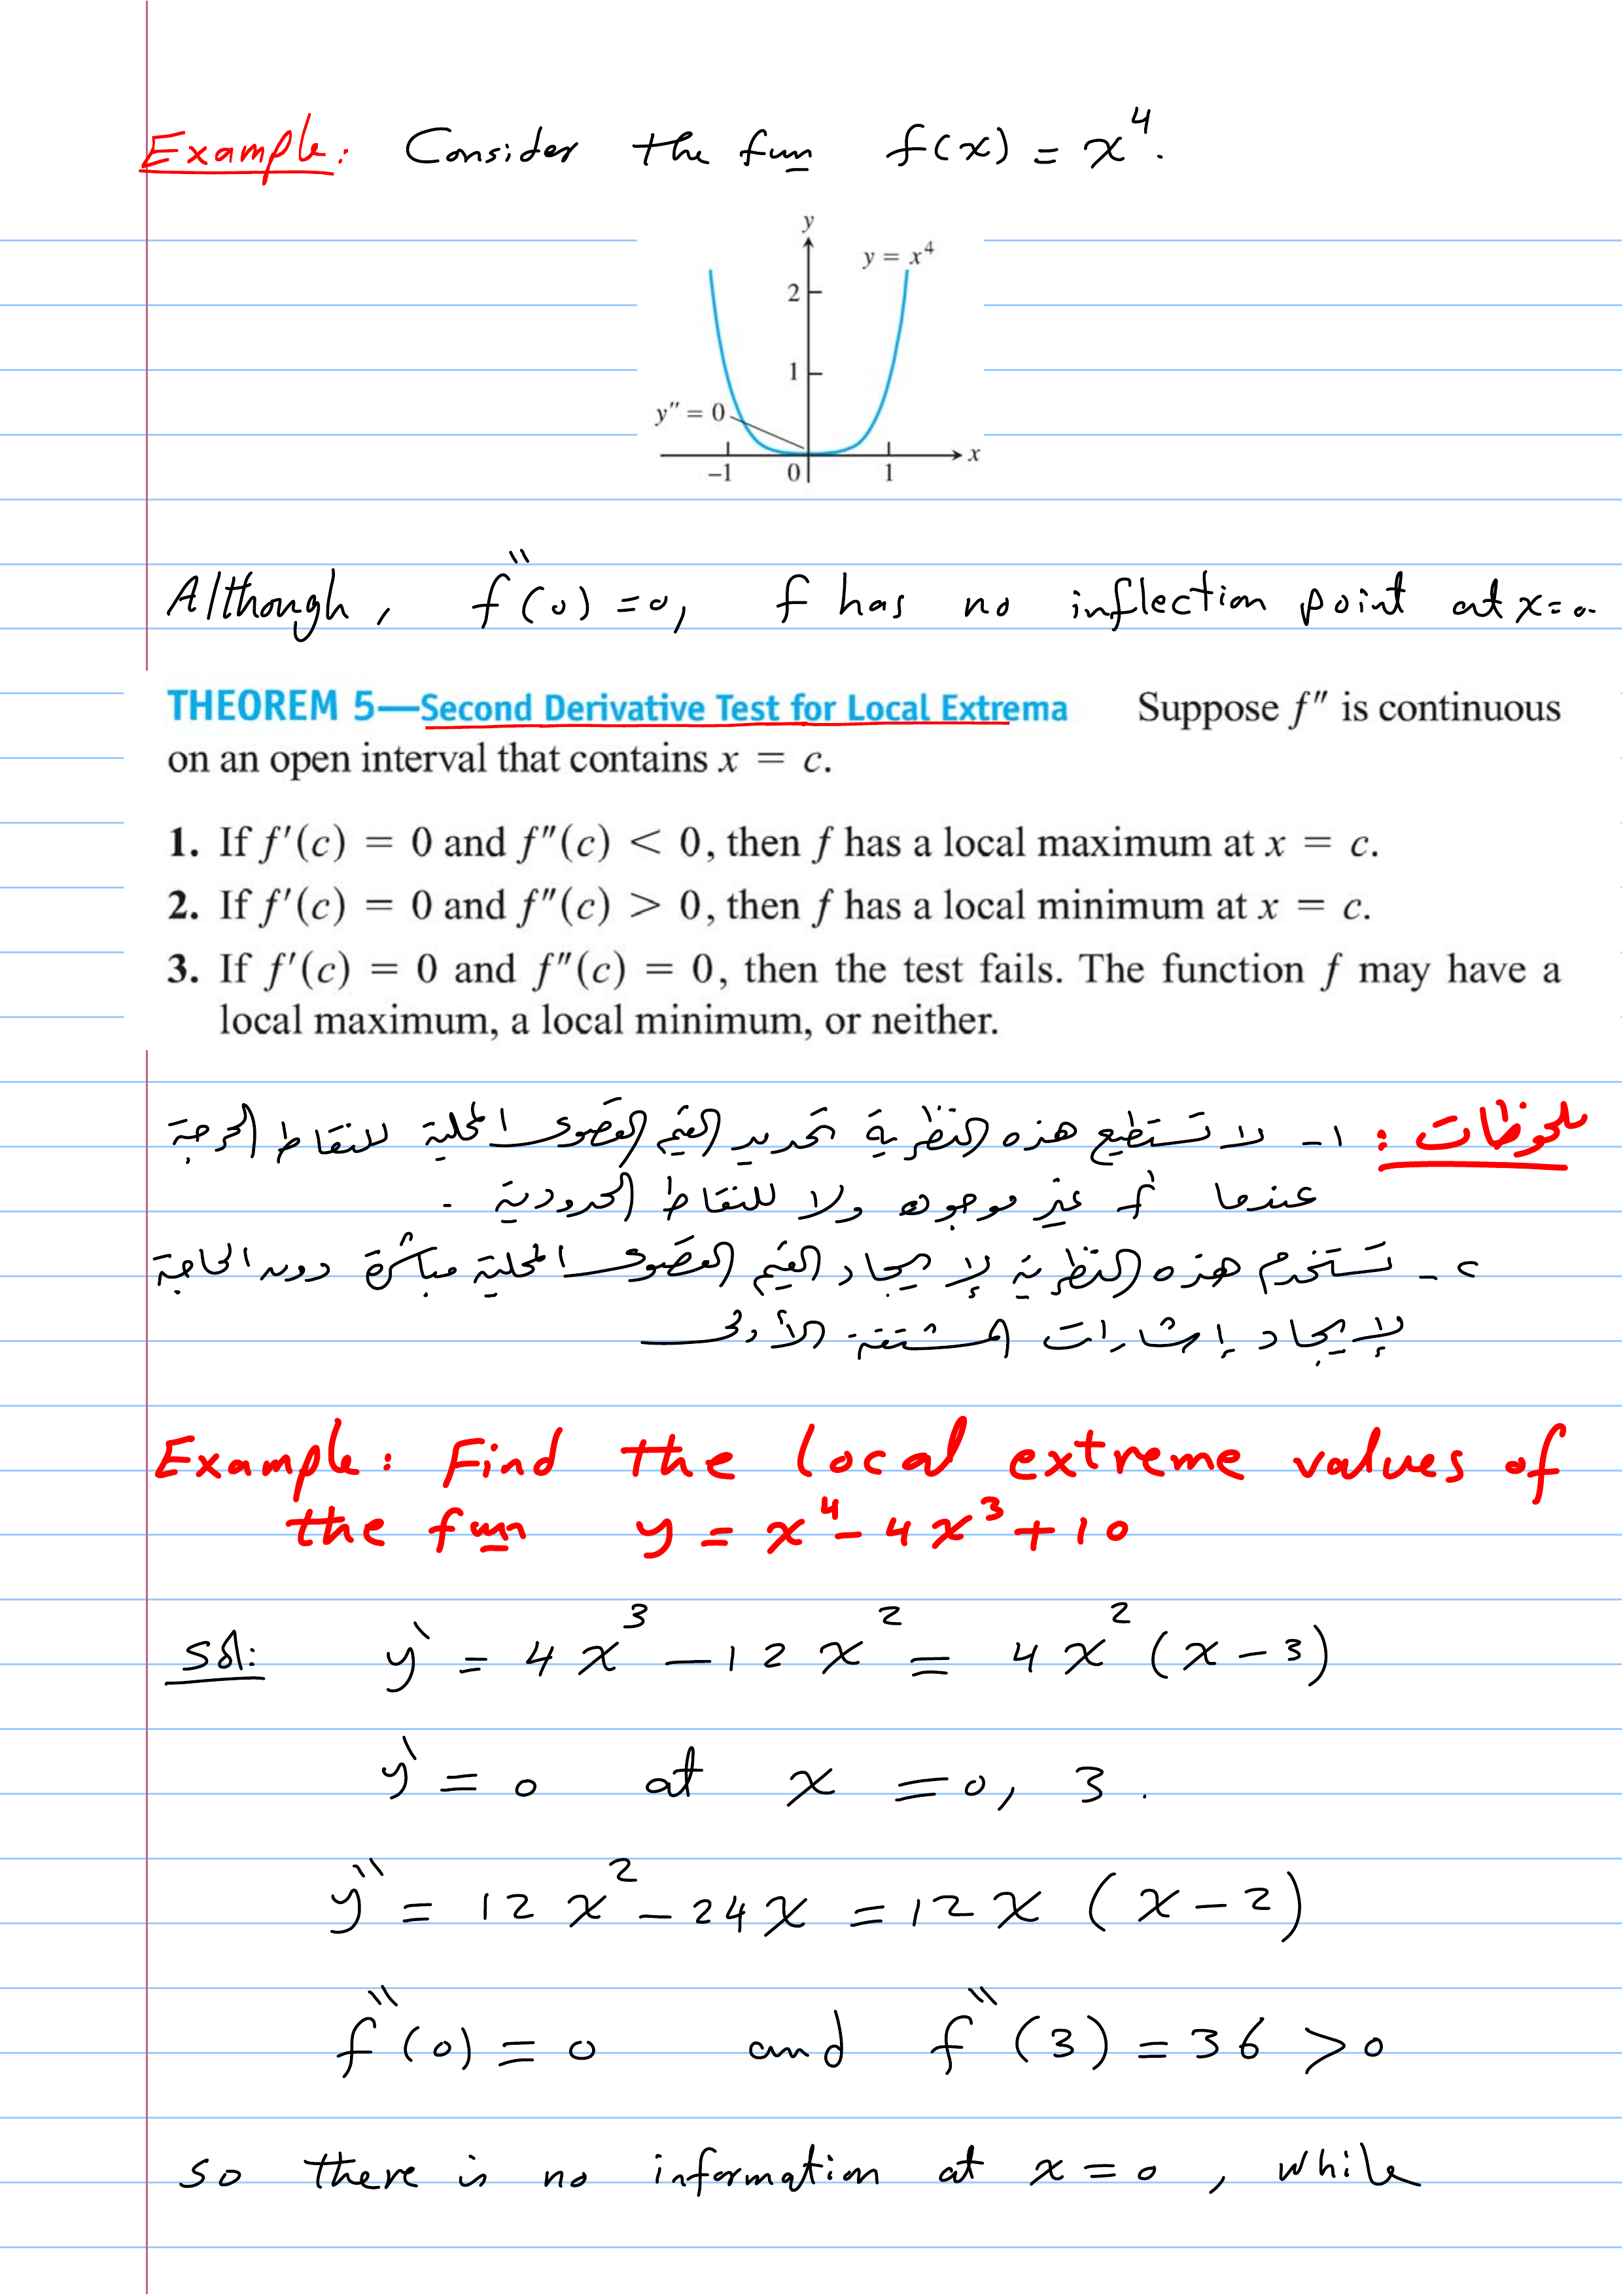 Example: Consider the fun f(x) = x⁴.
y
y = x⁴
2
1
y″ = 0
-1 0 1 x
Although, f″(0) = 0, f has no inflection point at x=0.
THEOREM 5—Second Derivative Test for Local Extrema Suppose f″ is continuous
on an open interval that contains x = c.
1. If f′(c) = 0 and f″(c) < 0, then f has a local maximum at x = c.
2. If f′(c) = 0 and f″(c) > 0, then f has a local minimum at x = c.
3. If f′(c) = 0 and f″(c) = 0, then the test fails. The function f may have a
local maximum, a local minimum, or neither.
ملحوظات : ١- لا تستطيع هذه النظرية تحديد القيم القصوى المحلية للنقاط الحرجة
عندما f′ غير موجوده ولا للنقاط الحدودية .
٢- تستخدم هذه النظرية لإيجاد القيم القصوى المحلية مباشرة دون الحاجة
لإيجاد إشارات المشتقة الأولى
Example: Find the local extreme values of
the fun y = x⁴ - 4x³ + 10
Sol: y′ = 4x³ - 12x² = 4x²(x-3)
y′ = 0 at x = 0, 3.
y″ = 12x² - 24x = 12x (x-2)
f″(0) = 0 and f″(3) = 36 > 0
so there is no information at x = 0, while